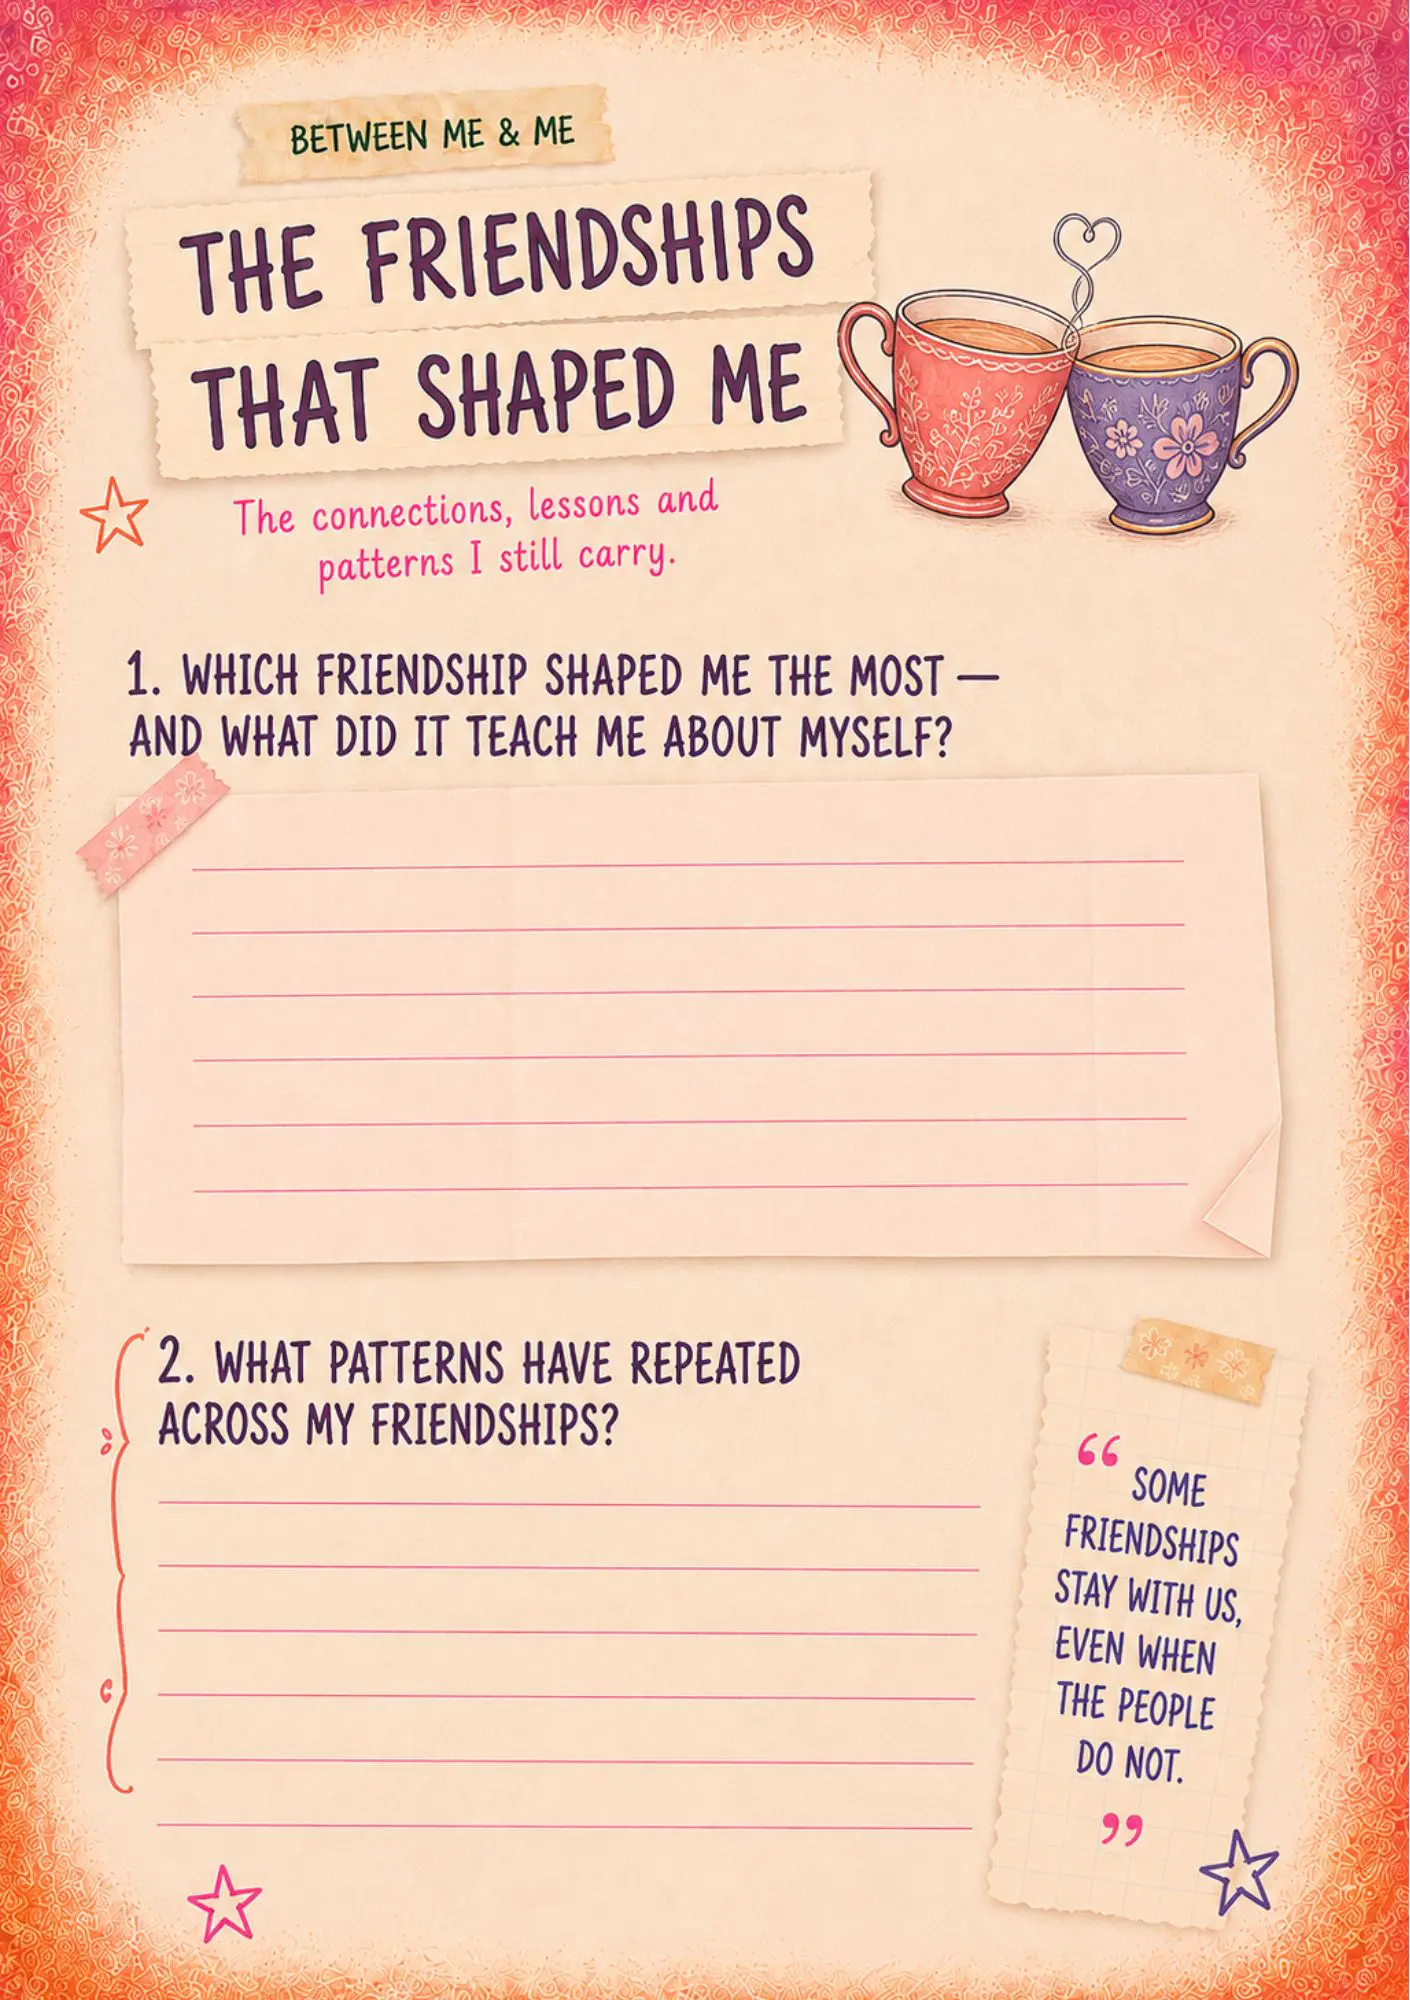 BETWEEN ME & ME
THE FRIENDSHIPS
THAT SHAPED ME
The connections, lessons and
patterns I still carry.
1. WHICH FRIENDSHIP SHAPED ME THE MOST —
AND WHAT DID IT TEACH ME ABOUT MYSELF?
2. WHAT PATTERNS HAVE REPEATED
ACROSS MY FRIENDSHIPS?
“ SOME
FRIENDSHIPS
STAY WITH US,
EVEN WHEN
THE PEOPLE
DO NOT.
”